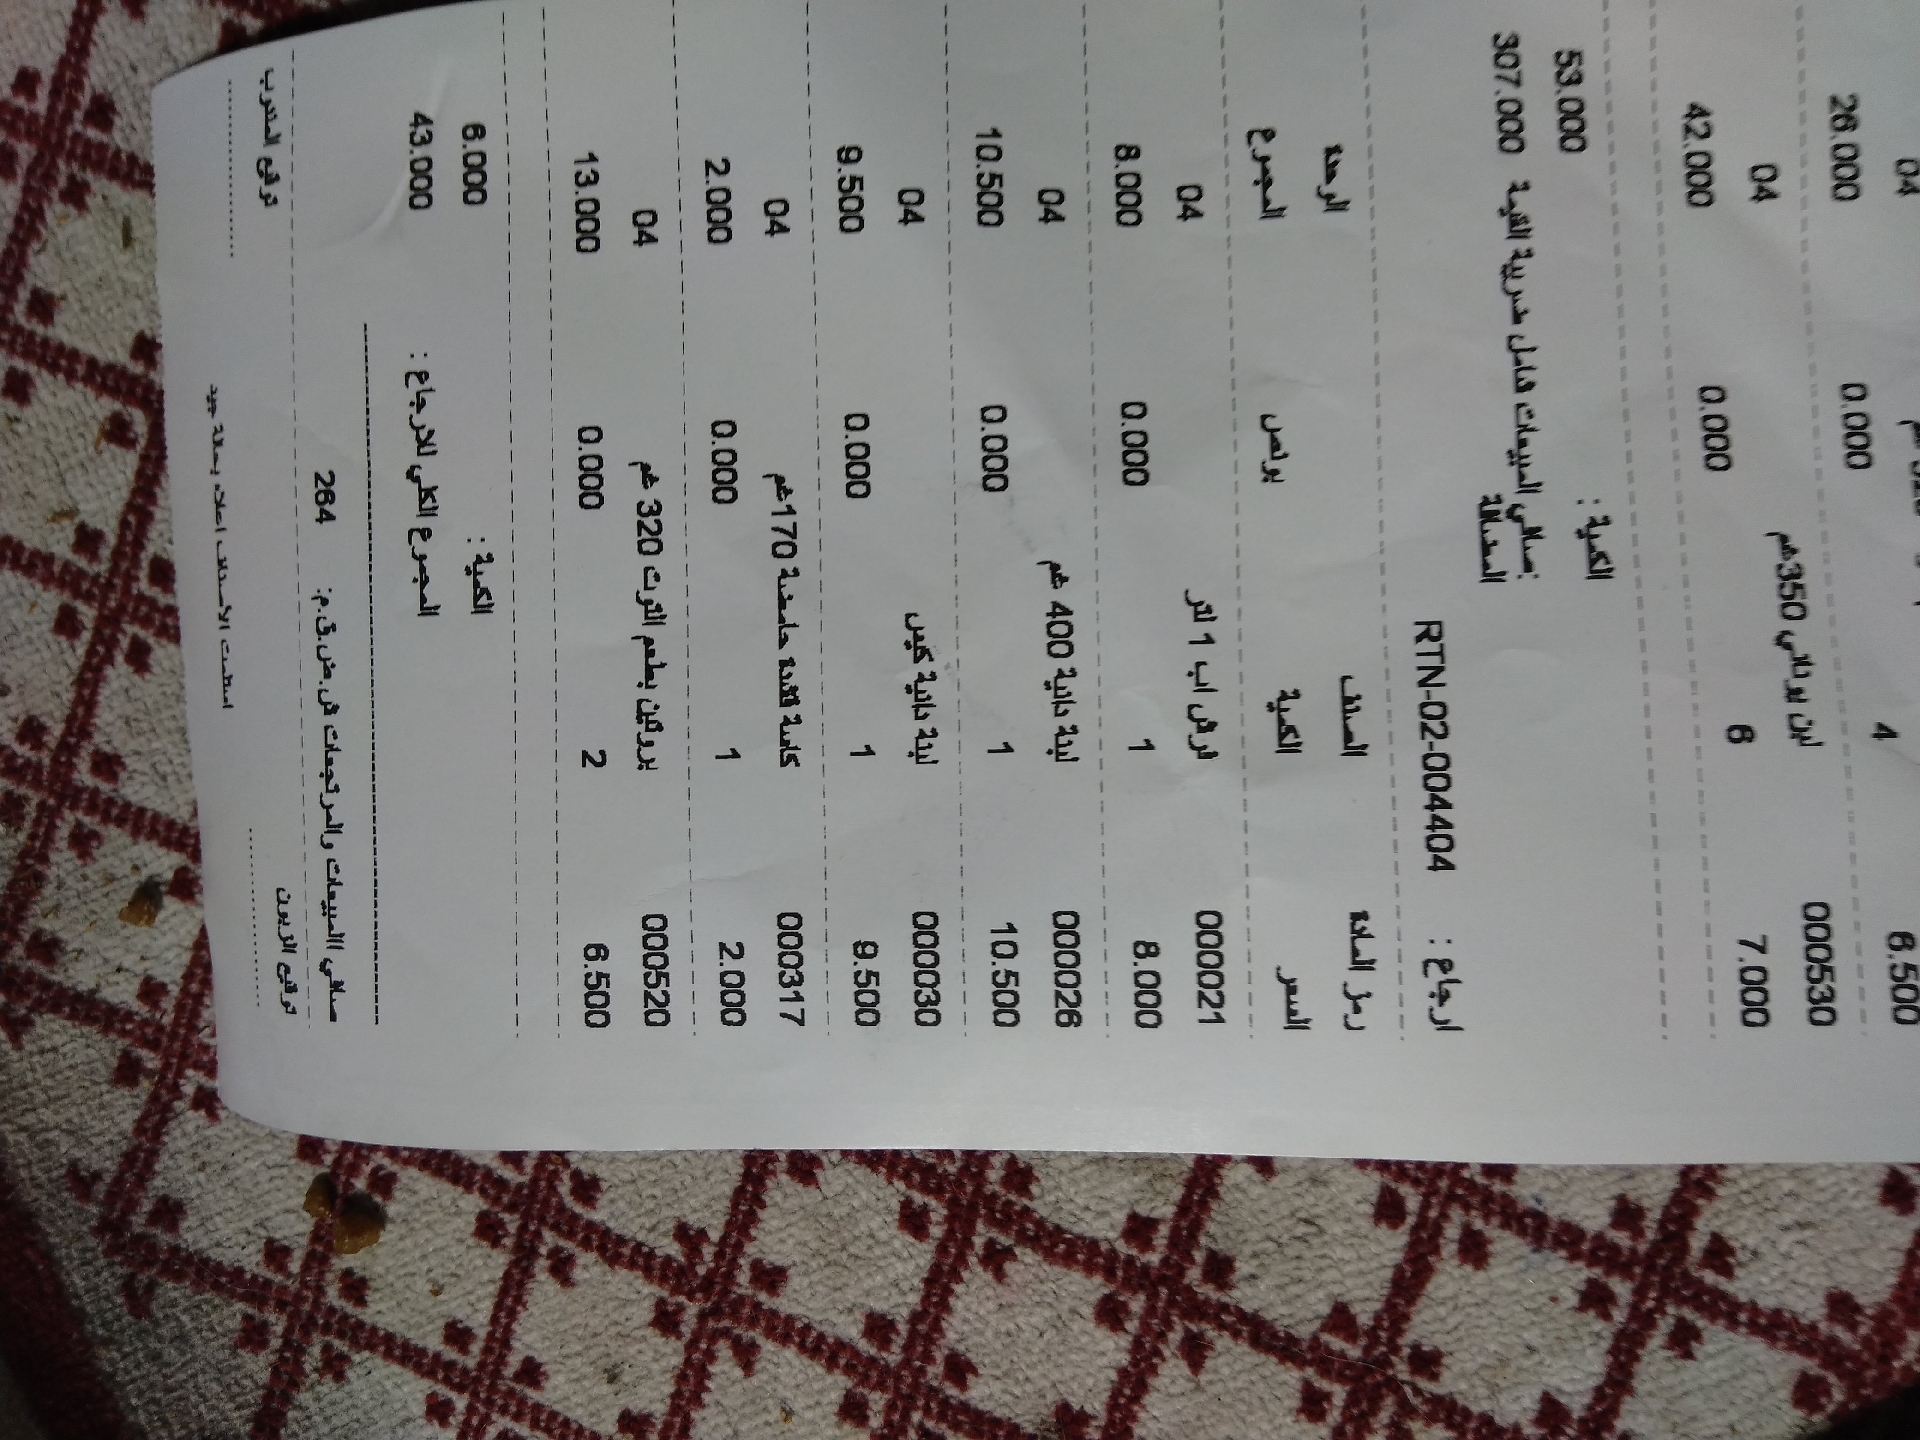 6.500 4 0.000 26.000
000530 لبن يوناني 350غم 04
7.000 6 0.000 42.000
الكمية : 53.000
صافي المبيعات شامل ضريبة القيمة 307.000
المضافة:
ارجاع : RTN-02-004404
رمز المادة الصنف الوحدة
السعر الكمية بونص المجموع
000021 فرش اب 1 لتر 04
8.000 1 0.000 8.000
000026 لبنة دانية 400 غم 04
10.500 1 0.000 10.500
000030 لبنة دانية كيس 04
9.500 1 0.000 9.500
000317 كاسة قشدة حامضة 170غم 04
2.000 1 0.000 2.000
000520 بروتين بطعم التوت 320 غم 04
6.500 2 0.000 13.000
الكمية : 6.000
المجموع الكلي للارجاع : 43.000
صافي االمبيعات والمرتجعات ش.ض.ق.م: 264
توقيع الزبون توقيع المندوب
استلمت الاصناف اعلاه بحالة جيد